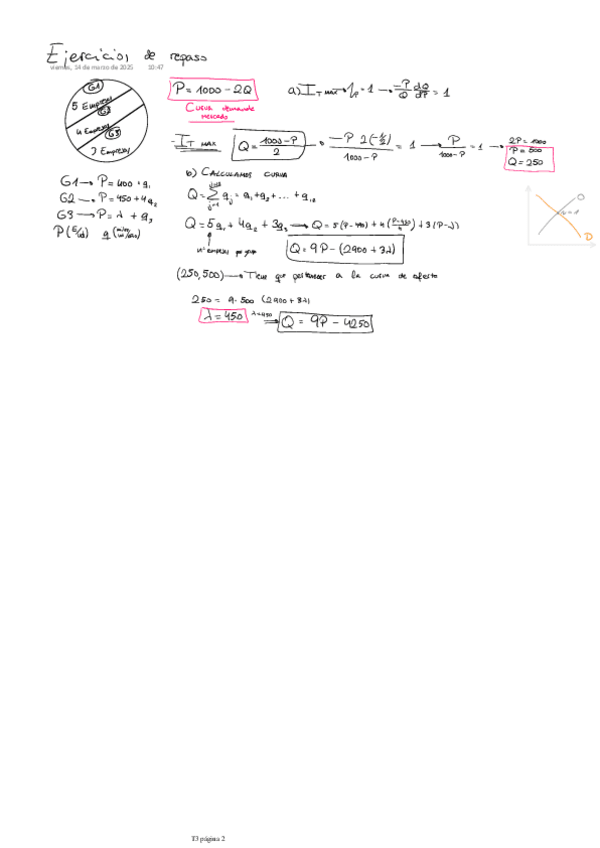 Ejercicios de repaso
viernes, 14 de marzo de 2025 10:47
G1
5 Empresas
G2
4 Empresas
G3
3 Empresas
P = 1000 - 2Q
CURVA demanda
MERCADO
a) I_T MAX → η_P = 1 → -P/Q dQ/dP = 1
I_T MAX
Q = (1000 - P)/2 → (-P 2(-1/2))/(1000 - P) = 1 → P/(1000 - P) = 1 → 2P = 1000
P = 500
Q = 250
G1 → P = 400 + q₁
G2 → P = 450 + 4q₂
G3 → P = λ + q₃
P (€/u) q
b) CALCULAMOS CURVA
Q = Σ q_j = q₁ + q₂ + ... + q₁₂
Q = 5q₁ + 4q₂ + 3q₃ → Q = 5(P - 400) + 4((P - 450)/4) + 3(P - λ)
nº empresas por grupo
Q = 9P - (2900 + 3λ)
(250, 500) → Tiene que pertenecer a la curva de oferta
250 = 9·500 (2900 + 3λ)
λ = 450 λ=450 ⇒ Q = 9P - 4250
O
η = 1
D
T3 página 2